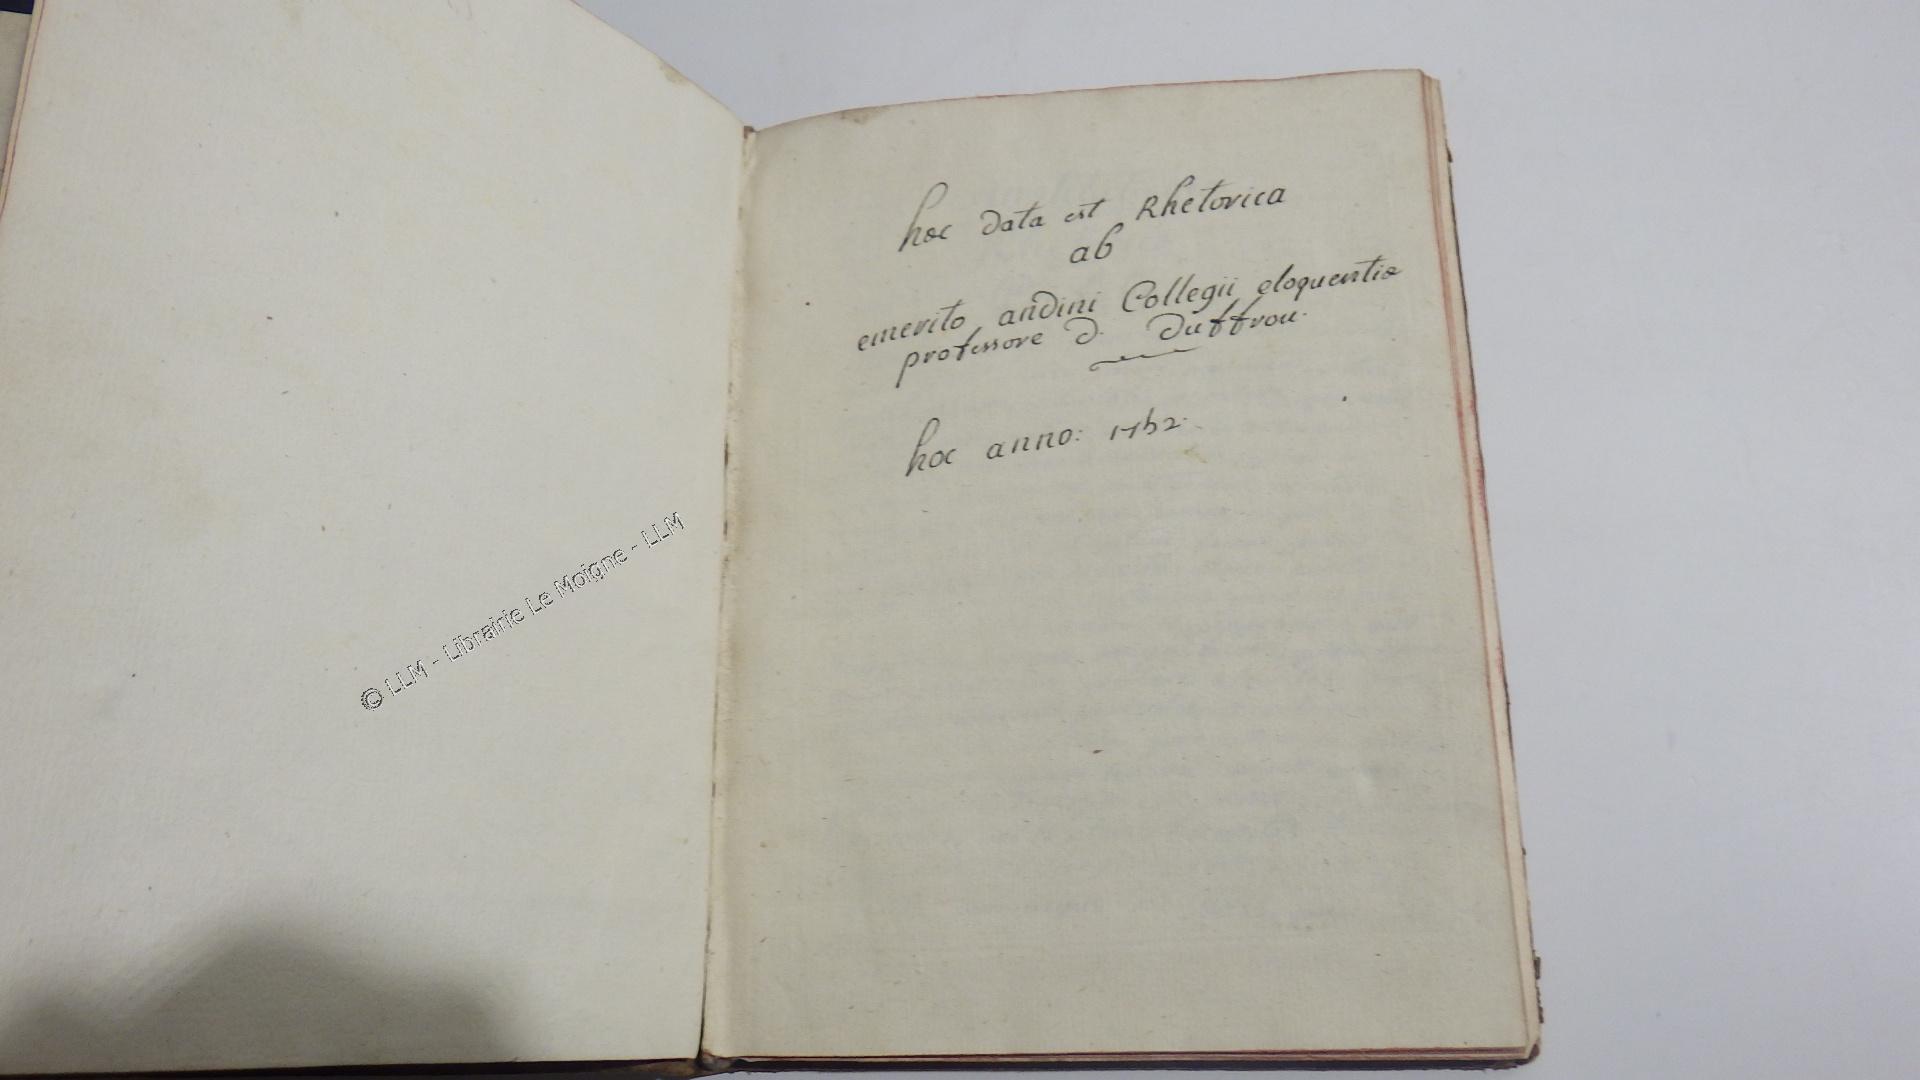 hæc data est Rhetorica
ab
emerito andini Collegii eloquentiæ
professore d. Duffrou.
hoc anno: 1752.
© LLM - Librairie Le Moigne - LLM